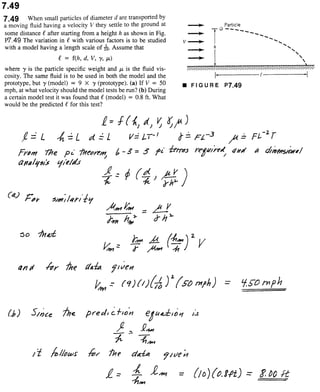 7.49
7.49 When small particles of diameter d are transported by
a moving fluid having a velocity V they settle to the ground at
some distance ℓ after starting from a height h as shown in Fig.
P7.49 The variation in ℓ with various factors is to be studied
with a model having a length scale of 1/10. Assume that
ℓ = f(h, d, V, γ, μ)
where γ is the particle specific weight and μ is the fluid vis-
cosity. The same fluid is to be used in both the model and the
prototype, but γ (model) = 9 × γ (prototype). (a) If V = 50
mph, at what velocity should the model tests be run? (b) During
a certain model test it was found that ℓ (model) = 0.8 ft. What
would be the predicted ℓ for this test?
Particle
V
h
ℓ
■ FIGURE P7.49
ℓ = f(h, d, V, γ, μ)
ℓ ≐ L h ≐ L d ≐ L V ≐ LT⁻¹ γ ≐ FL⁻³ μ ≐ FL⁻²T
From the pi theorem, 6-3 = 3 pi terms required, and a dimensional
analysis yields
ℓ/h = φ(d/h, μV/γh²)
(a) For similarity
μm Vm / γm hm² = μV / γh²
so that
Vm = γm/γ μ/μm (hm/h)² V
and for the data given
Vm = (9)(1)(1/10)² (50 mph) = 4.50 mph
(b) Since the prediction equation is
ℓ/h = ℓm/hm
it follows for the data given
ℓ = h/hm ℓm = (10)(0.8ft) = 8.00 ft